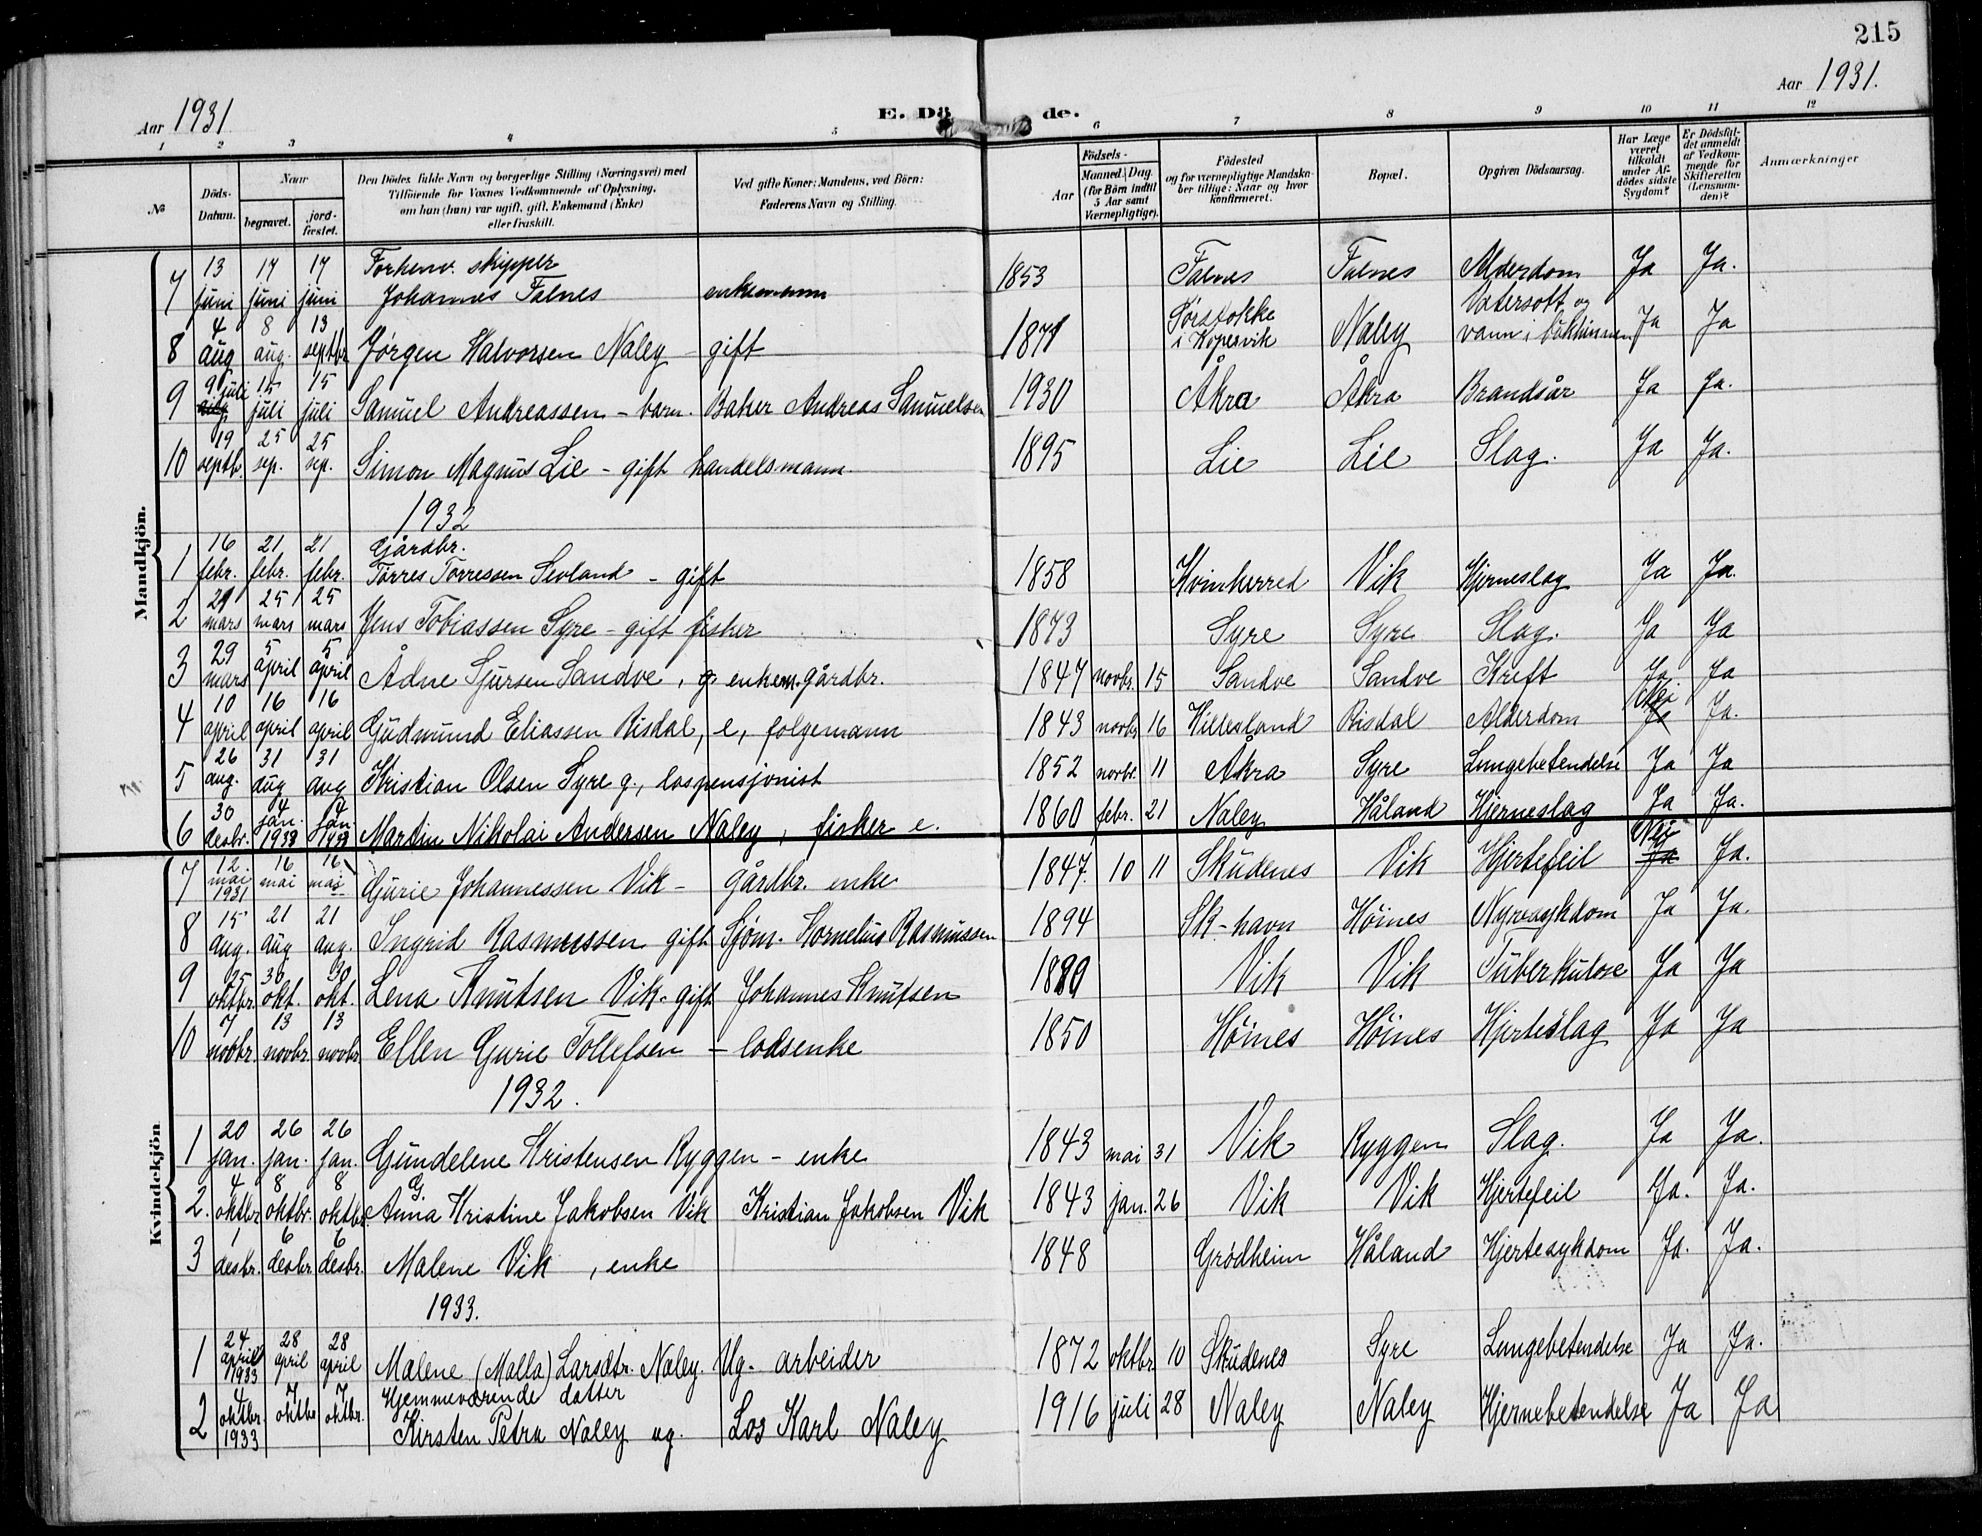 215
Aar 1931
E. Dö de.
Aar 1931.
1 2 3 4 5 6 7 8 9 10 11 12
№ Döds-Datum. Naar begravet. jord-fæstet. Den Dödes fulde Navn og borgerlige Stilling (Næringsvei) med Tilföiende for Voxnes Vedkommende af Oplysning, om han (hun) var ugift, gift, Enkemand (Enke) eller fraskilt. Ved gifte Koner: Mandens, ved Börn: Faderens Navn og Stilling. Födsels- Aar Maaned. Dag. (for Börn indtil 5 Aar samt Værnepligtige). Födested og for værnepligtige Mandskaber tillige: Naar og hvor konfirmeret. Bopæl. Opgiven Dödsaarsag. Har Læge været tilkaldt under Afdödes sidste Sygdom? Er Dödsfaldet anmeldt af Vedkommende for Skifteretten (Lensmanden)? Anmærkninger
Mandkjön.
7 13 juni 17 juni 17 juni Forhenv. skipper Johannes Falnes enkemann 1853 Falnes Falnes Alderdom Ja Ja.
8 4 aug 8 aug. 13 septbr Jørgen Halvorsen Naley – gift 1871 Sørstokke i Kopervik Naley Vatersott og vann i bukhinnen Ja Ja
9 9 juli 15 juli 15 juli Samuel Andreassen – barn. Baker Andreas Samuelsen 1930 Åkra Åkra Brandsår Ja Ja.
10 19 septb. 25 sep. 25 sep. Simon Magnus Lie – gift handelsmann 1895 Lie Lie Slag. Ja Ja.
1932
1 16 febr. 21 febr. 21 febr. Gårdbr. Tørres Torressen Sevland – gift 1858 Kvinherred Vik Hjerneslag Ja Ja.
2 21 mars 25 mars 25 mars Jens Tobiassen Syre – gift fisker 1873 Syre Syre Slag. Ja Ja
3 29 mars 5 april 5 april Ådne Sjursen Sandve, enkem. gårdbr. 1847 novbr. 15 Sandve Sandve Kreft Ja Ja
4 10 april 16 april 16 april Gudmund Eliassen Risdal, e, folgemann 1843 novbr 16 Hillesland Risdal Alderdom Nei Ja.
5 26 aug. 31 aug 31 aug Kristian Olsen Syre g., lospensjonist 1852 novbr. 11 Åkra Syre Lungebetendelse Ja Ja
6 30 desbr. 4 jan. 1933 4 jan. 1933 Martin Nikolai Andersen Naley, fisker e. 1860 febr. 21 Naley Håland Hjerneslag Ja Ja.
Kvindekjön
7 12. mai 1931 16 mai 16 mai Gurie Johannessen Vik – gårdbr. enke 1847. 10 11 Skudenes Vik Hjertefeil Nei Ja.
8 15 aug. 21 aug 21 aug. Ingrid Rasmussen gift Sjøm. Kornelius Rasmussen 1894 Sk-havn Høines Nyresykdom Ja Ja.
9 25 oktbr. 30 okt. 30 okt. Lena Knutsen Vik – gift Johannes Knutsen Vik Vik Tuberkulose Ja Ja
10 7 novbr. 13 novbr. 13 novbr. Ellen Gurie Tollefsen – lodsenke 1850 Høines Høines Hjerteslag Ja Ja
1932.
1 20 jan. 26 jan. 26 jan. Gundelene Kristensen Ryggen – enke 1843 mai 31 Vik Ryggen Slag. Ja Ja.
2. 4 oktbr 8 oktbr. 8 oktbr. Anna G. Kristine Jakobsen Vik Kristian Jakobsen Vik 1843 jan. 26 Vik Vik Hjertefeil Ja. Ja.
3 1 desbr. 6 desbr. 6 desbr. Malene Vik, enke 1848 Grødheim Håland Hjertesykdom Ja. Ja.
1933.
1 24 april 1933 28 april 28 april Malene (Malla) Larsdtr. Naley. Ug. arbeider 1872 oktbr. 10 Skudenes Syre Lungebetendelse Ja Ja.
2 4 oktbr. 1933 7 oktbr 7 oktbr. Hjemmeværende datter Kirsten Petra Naley ug. Los Karl Naley 1916 juli 28 Naley Naley Hjernebetendelse Ja Ja